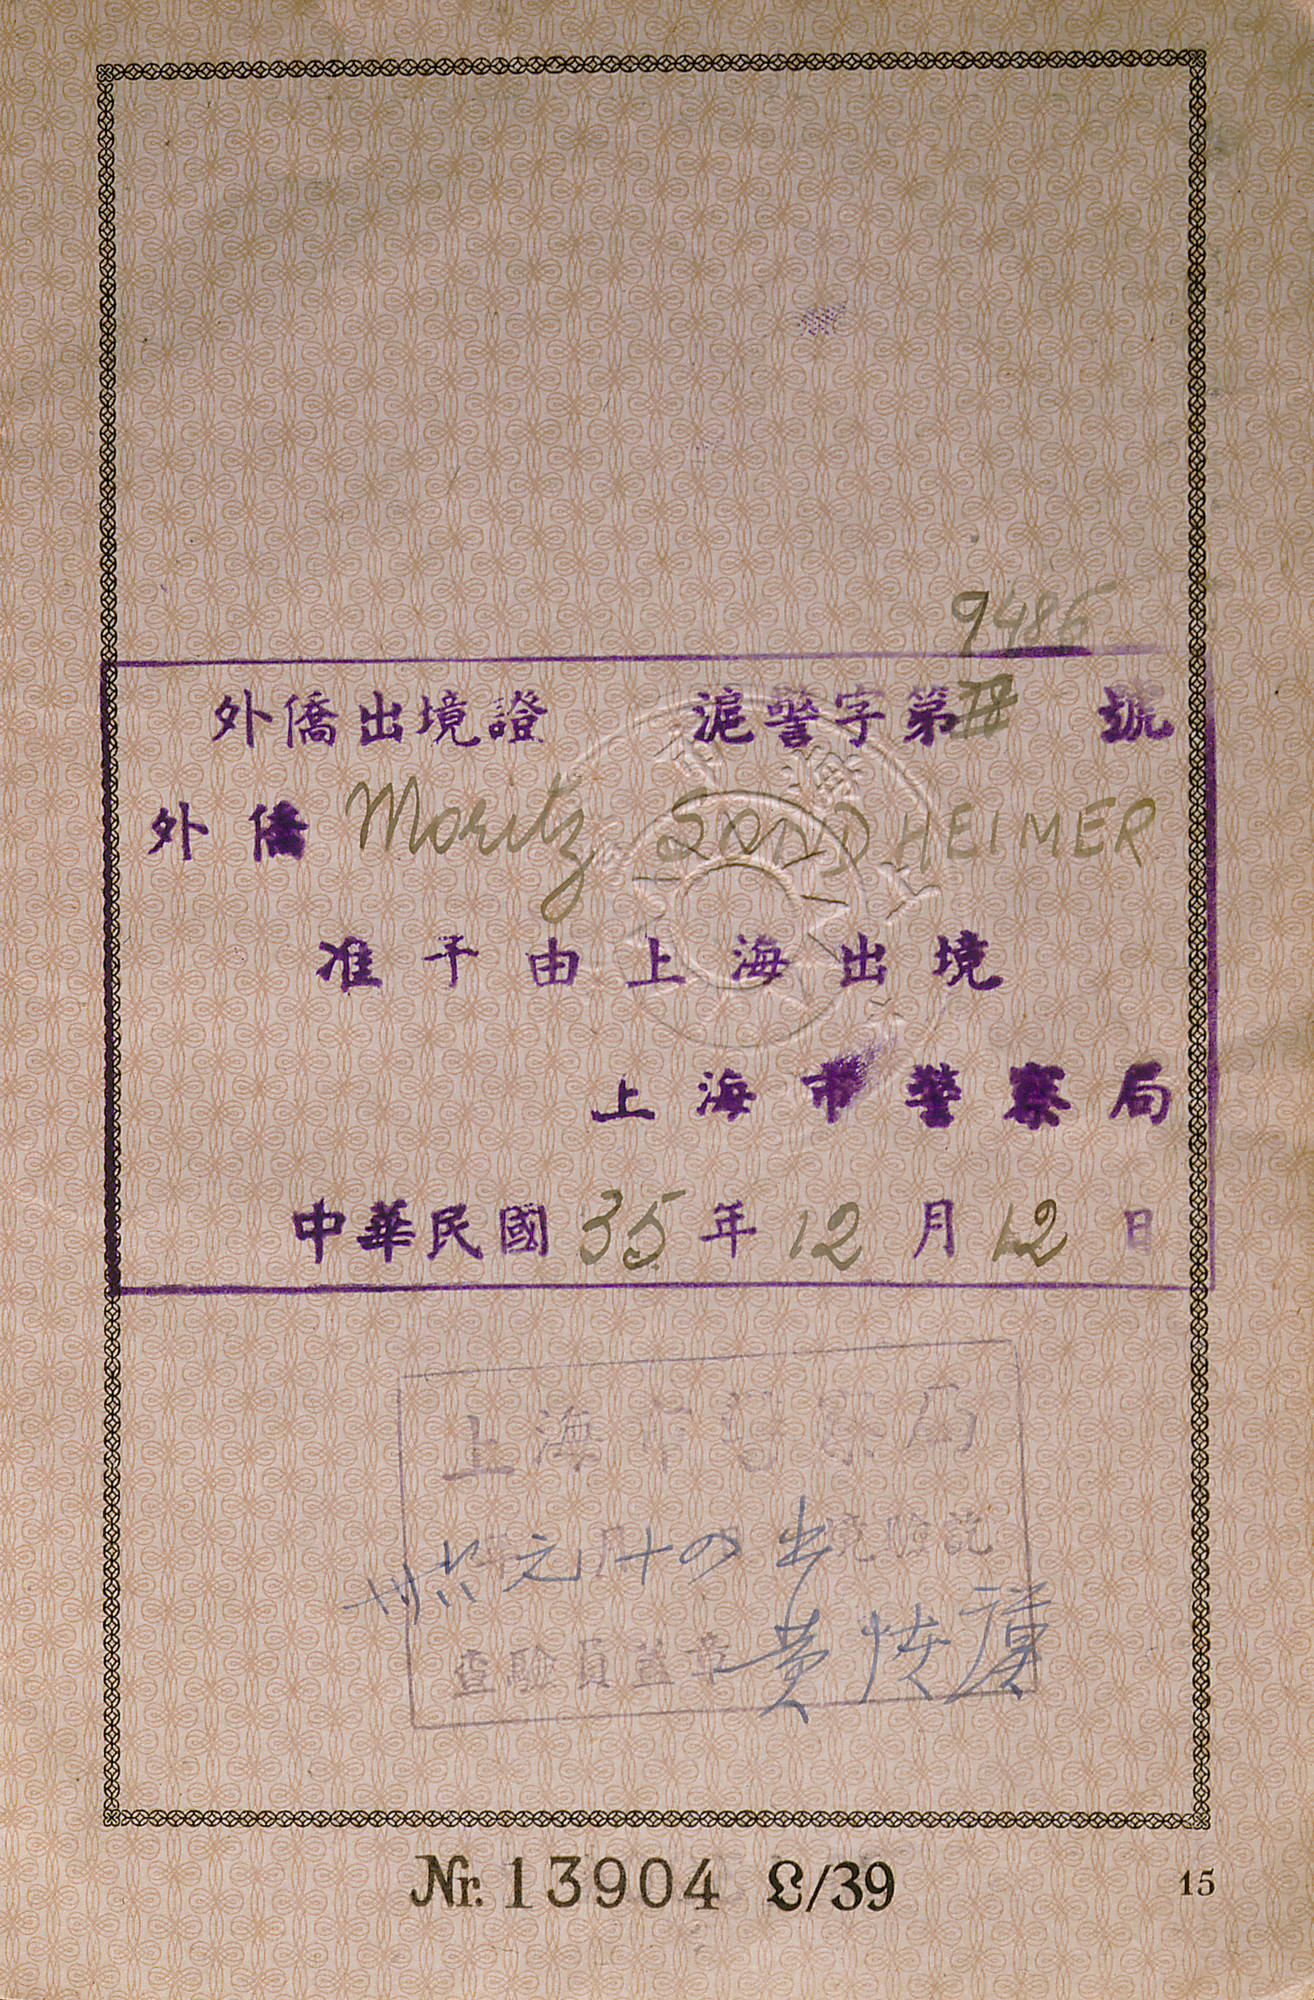 9486
外僑出境證 滬警字第 號
外僑 Moritz SONDHEIMER
准予由上海出境
上海市警察局
中華民國35年12月12日
上海市警察局
卅六 元月十四 出境驗訖
查驗員蓋章 黃
Nr. 13904 L/39
15